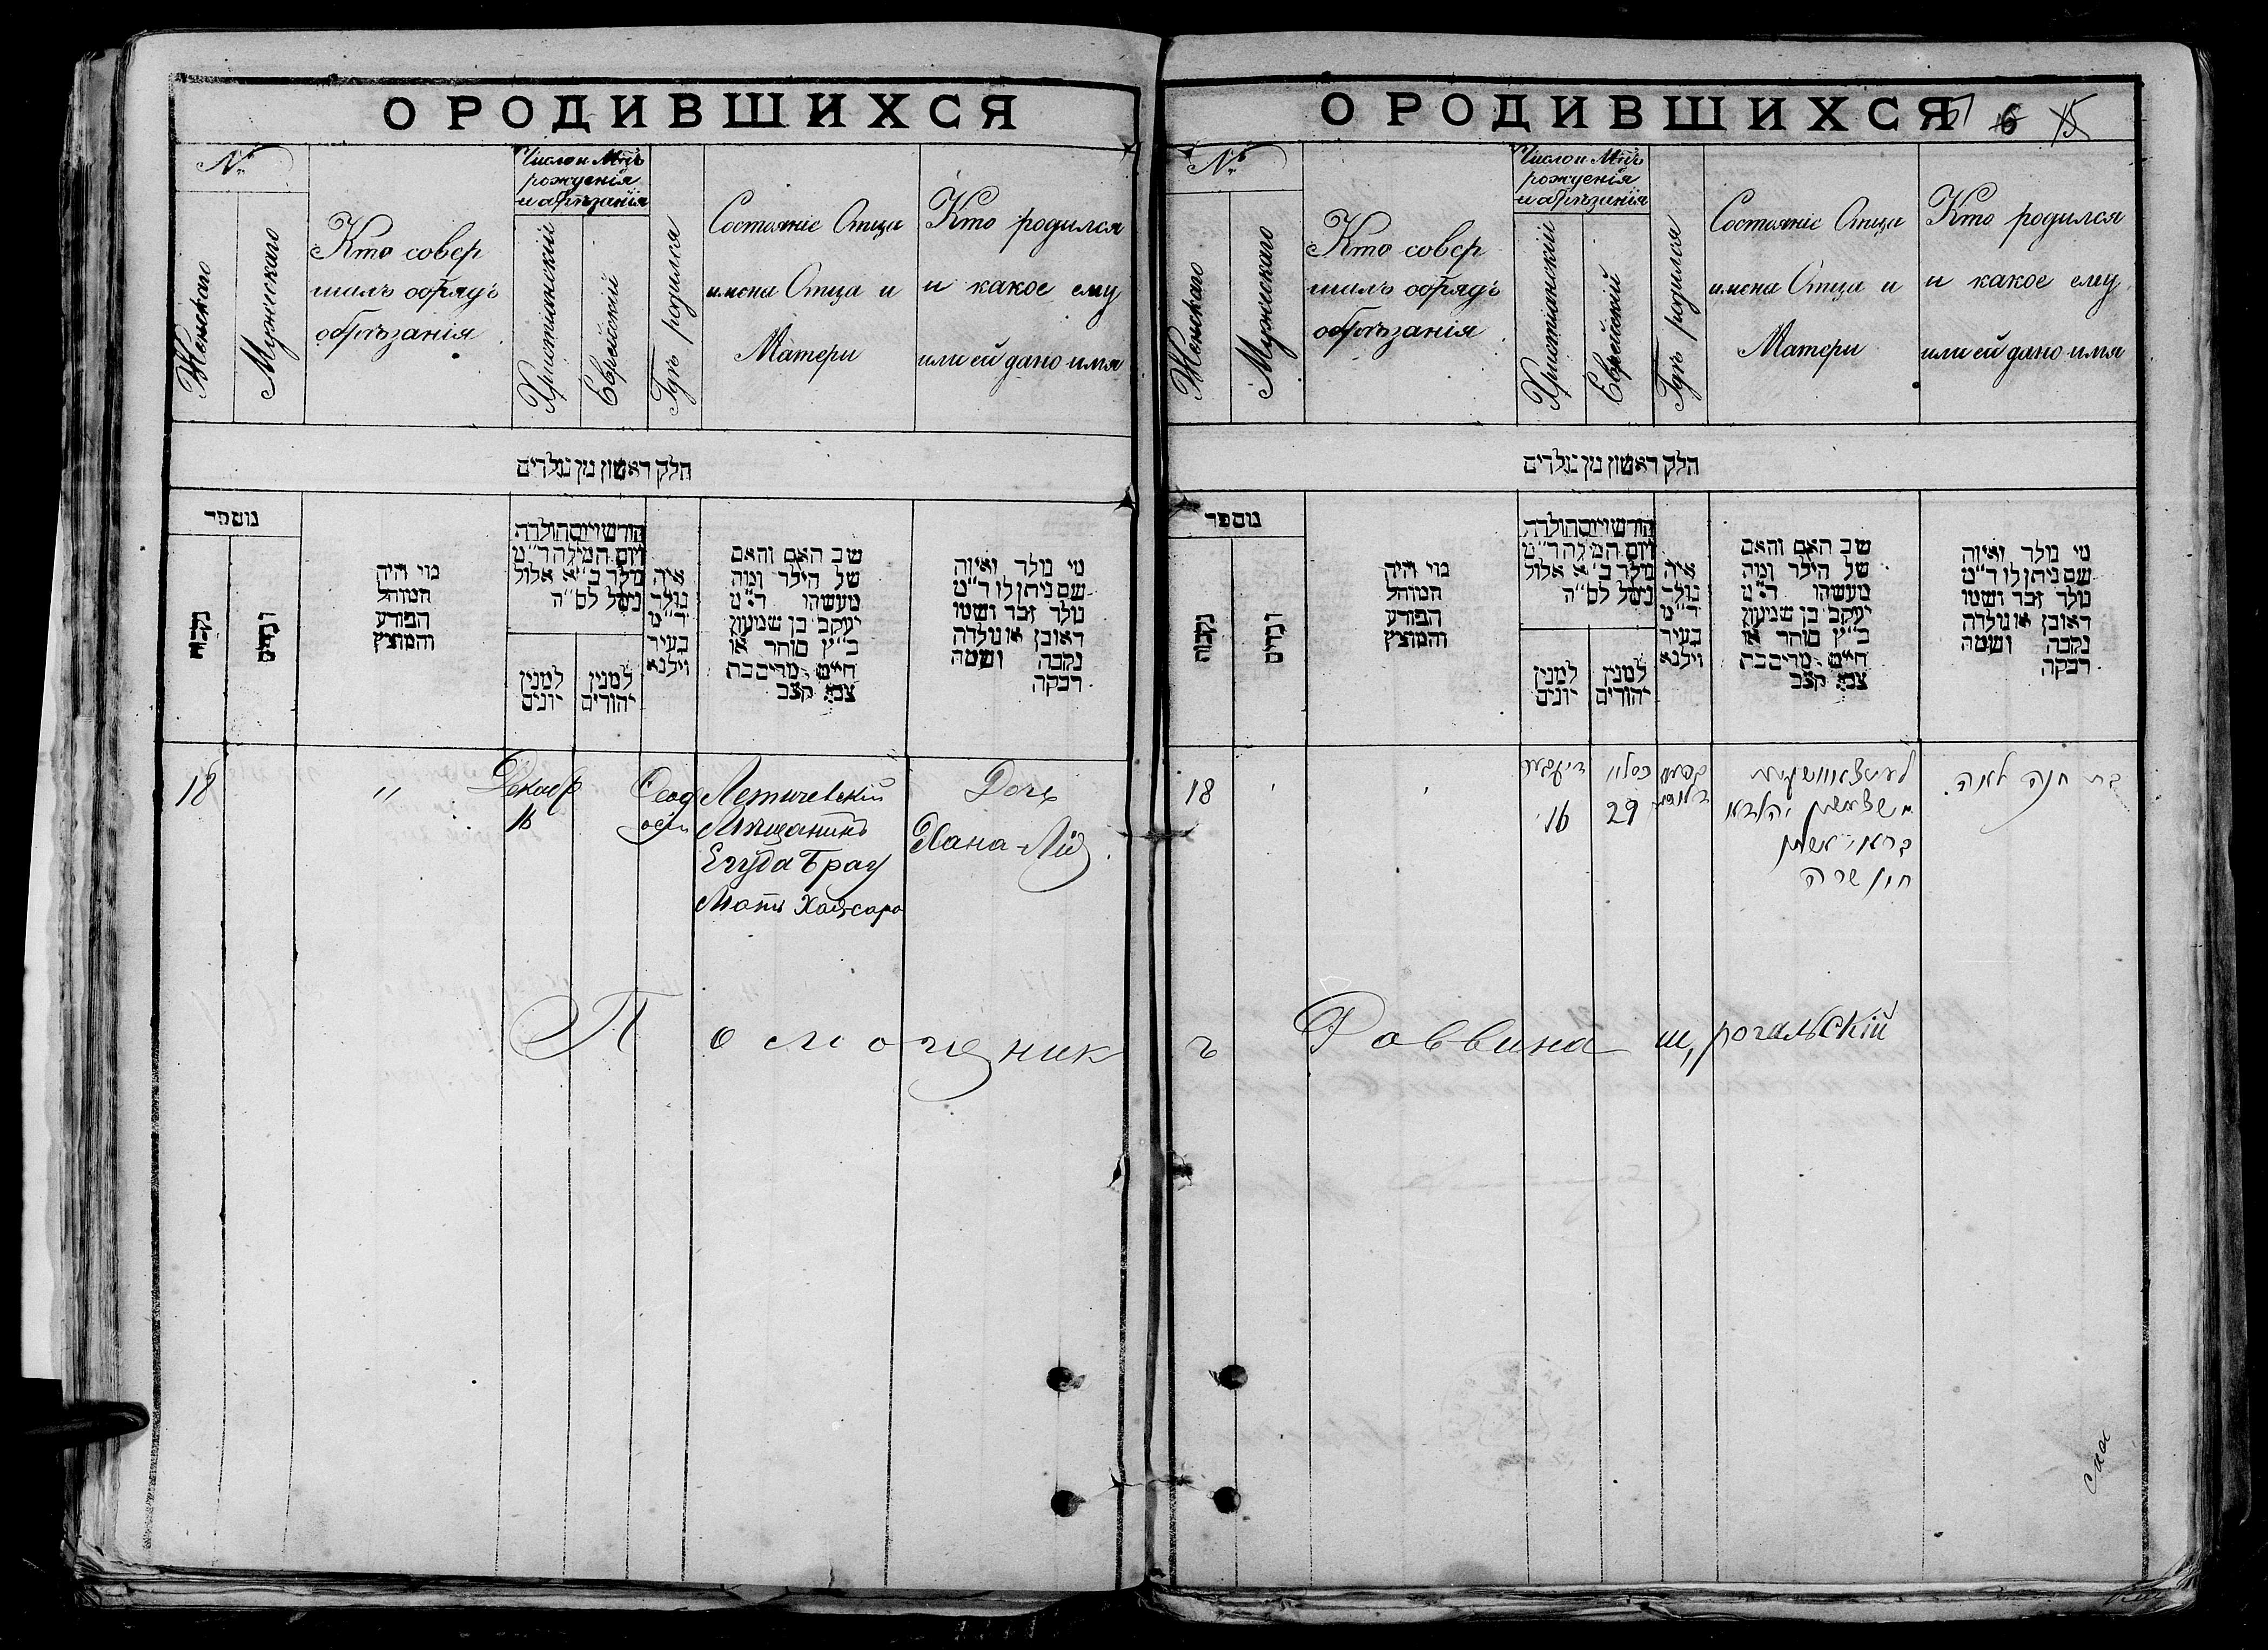 О РОДИВШИХСЯ
№
Женскаго
Мужескаго
Кто совер
шалъ обрядъ
обрѣзанія
Число и Мѣць
рожденія
и обрѣзанія
Христіанскій
Еврейскій
Гдѣ родился
Состояніе Отца
имена Отца и
Матери
Кто родился
и какое ему
или ей дано имя
חלק ראשון מן נולדים
מספר
נקבות
זכרים
מי היה
המוהל
הפורע
והמוצץ
חודש ויום הולדת
ויום המילה ד״מ
נולד ב״א אלול
נימל לס״ה
למנין
יונים
למנין
יהודים
איה
נולד
ד״מ
בעיר
וילנא
שב האם והאם
של הילד ומה
מעשהו ד״מ
יעקב בן שמעון
כ״ץ סוחר או
חייט מרים בת
צבי קצב
מי נולד ואיזה
שם ניתן לו ד״מ
נולד זכר ושמו
ראובן או נולדה
נקבה ושמה
רבקה
18
〃
Декабр
16
Летичевскій
Мѣщанинъ
Егуда Брау
Мать Хаясара
Дочь
Хана-Лія
Помощник
О РОДИВШИХСЯ
6
15
№
Женскаго
Мужескаго
Кто совер
шалъ обрядъ
обрѣзанія
Число и Мѣць
рожденія
и обрѣзанія
Христіанскій
Еврейскій
Гдѣ родился
Состояніе Отца
имена Отца и
Матери
Кто родился
и какое ему
или ей дано имя
חלק ראשון מן נולדים
מספר
נקבות
זכרים
מי היה
המוהל
הפורע
והמוצץ
חודש ויום הולדת
ויום המילה ד״מ
נולד ב״א אלול
נימל לס״ה
למנין
יונים
למנין
יהודים
איה
נולד
ד״מ
בעיר
וילנא
שב האם והאם
של הילד ומה
מעשהו ד״מ
יעקב בן שמעון
כ״ץ סוחר או
חייט מרים בת
צבי קצב
מי נולד ואיזה
שם ניתן לו ד״מ
נולד זכר ושמו
ראובן או נולדה
נקבה ושמה
רבקה
18
דיעקבער
16
כסלו
29
חי׳ שרה
בת חנה לאה
ъ Раввина Ш, рогальскій